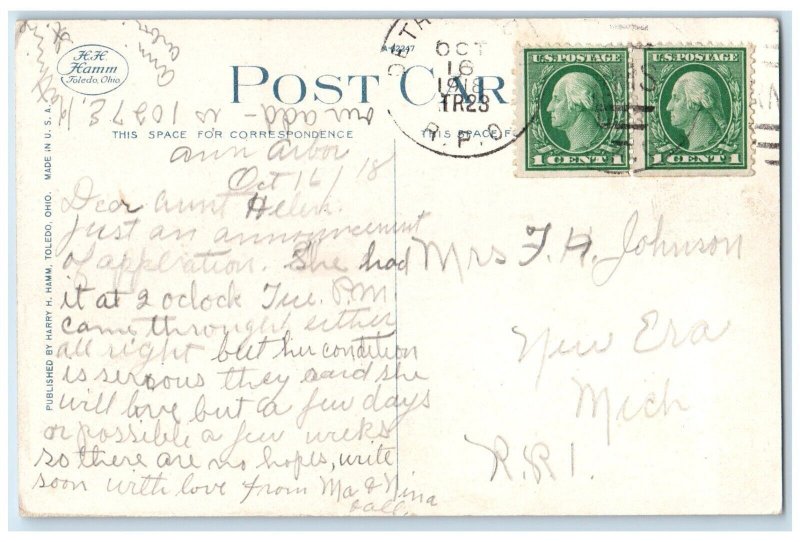 H.H.
Hamm
Toledo, Ohio.
A-42247
POST CAR
THIS SPACE FOR CORRESPONDENCE
THIS SPACE F
MADE IN U. S. A.
PUBLISHED BY HARRY H. HAMM, TOLEDO, OHIO.
OCT
16
1918
TR23
R.P.O
U.S. POSTAGE
1 CENT 1
U.S. POSTAGE
1 CENT 1
our add
Ann Arbor
Oct 16/18
Dear Aunt Helen.
Just an announcement
of apperation. She had
it at 2 oclock Tue. P.M
came through either
all right but her condition
is serious they said she
will live but a few days
or possible a few weeks
so there are no hopes, write
soon with love from Ma & Nina
Mrs F. H. Johnson
New Era
Mich
R.R 1.